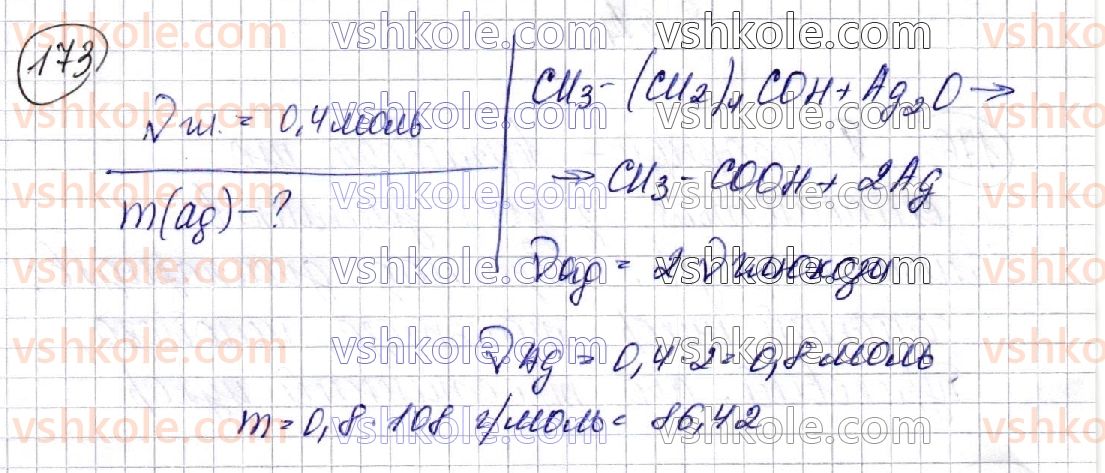 173
νгл. = 0,4 моль
m(ag) - ?
CH3 - (CH2)4 COH + Ag2O →
→ CH3 - COOH + 2Ag
νag = 2 ν
νAg = 0,4·2 = 0,8 моль
m = 0,8·108 г/моль = 86,42
vshkole.com